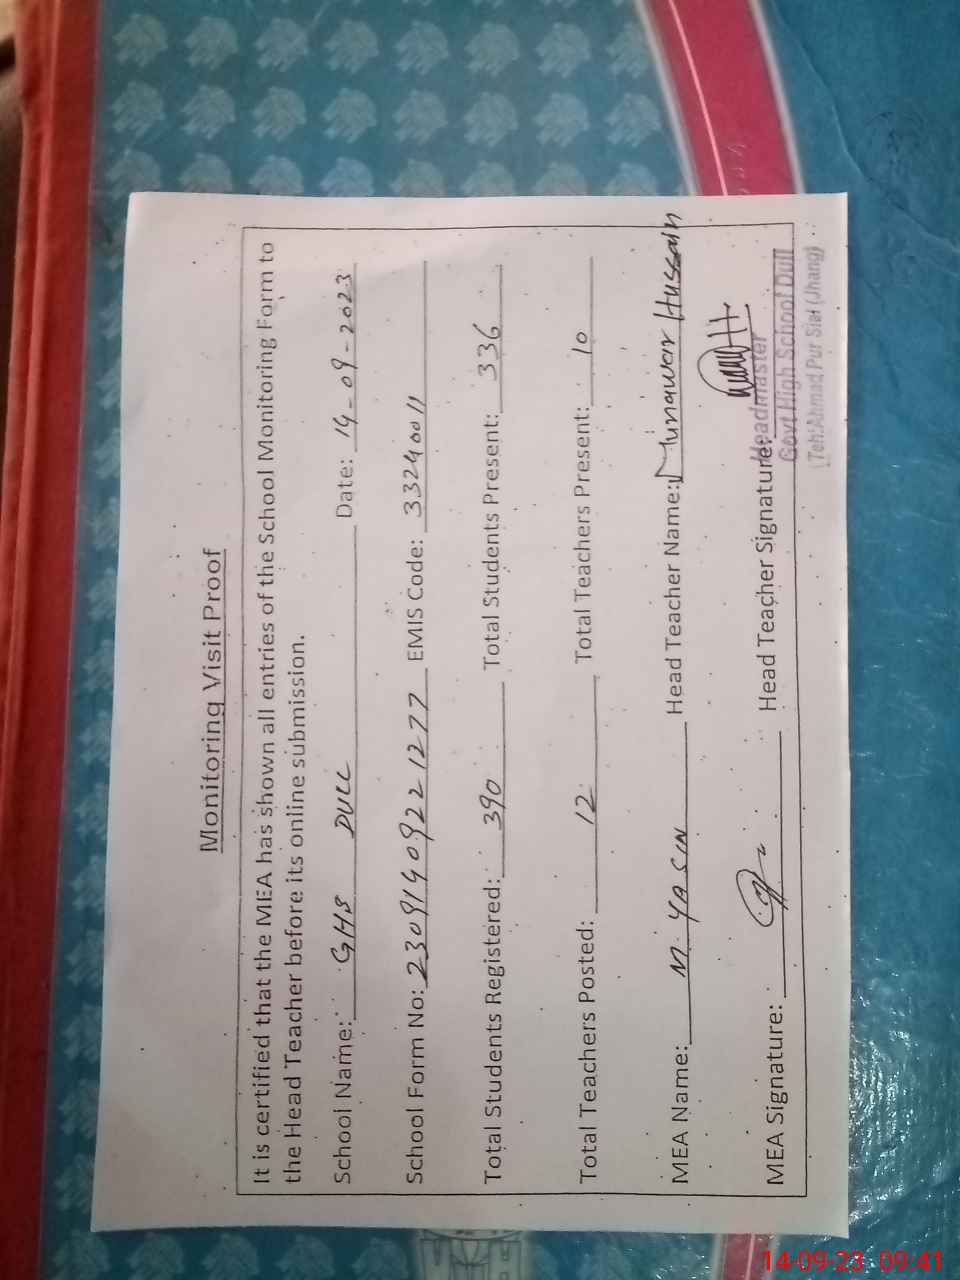 Monitoring Visit Proof
It is certified that the MEA has shown all entries of the School Monitoring Form to
the Head Teacher before its online submission.
School Name: GHS DULL Date: 14-09-2023
School Form No: 23091409221277 EMIS Code: 33240011
Total Students Registered: 390 Total Students Present: 336
Total Teachers Posted: 12 Total Teachers Present: 10
MEA Name: M. YASIN Head Teacher Name: Munawar Hussain
MEA Signature: Head Teacher Signature:
Headmaster
Govt High School Dull
(Teh: Ahmad Pur Sial (Jhang)
14-09-23 09:41